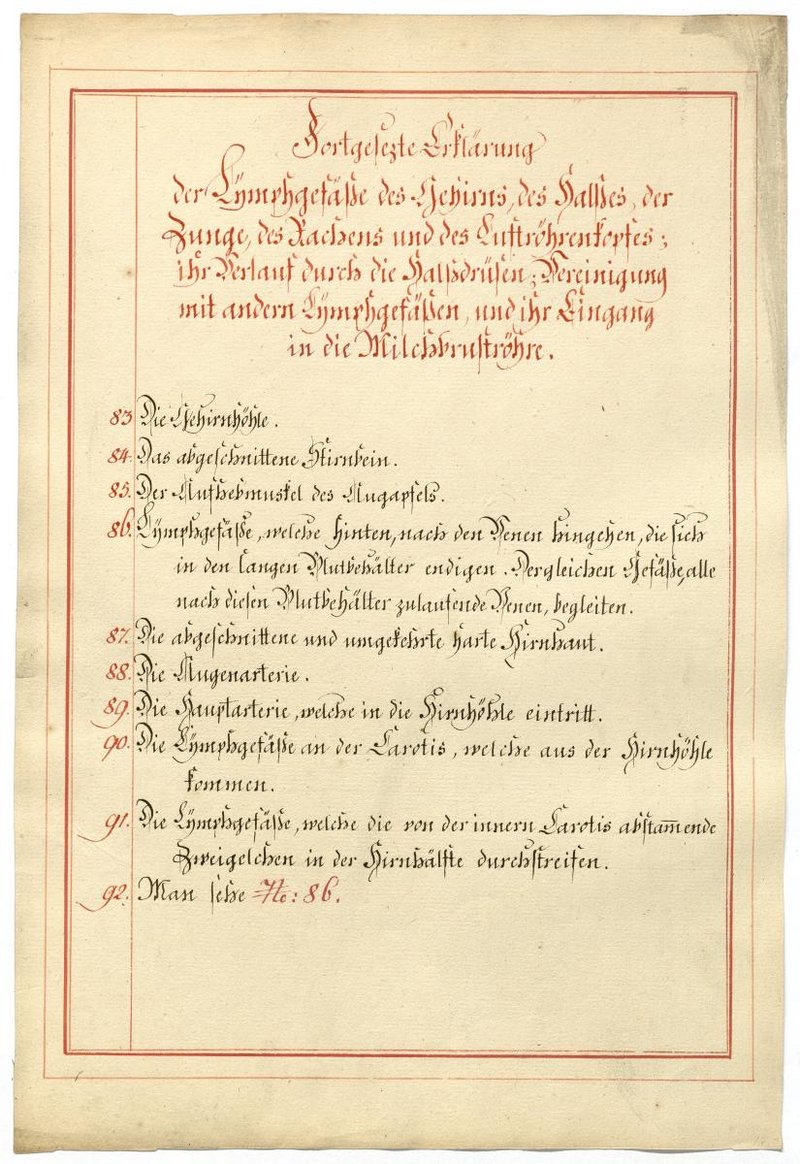 Fortgesezte Erklärung
der Lÿmphgefäße des Gehirns, des Halßes, der
Zunge, des Rachens und des Luftröhrenkopfes;
ihr Verlauf durch die Halßdrüsen; Vereinigung
mit andern Lÿmphgefäßen, und ihr Eingang
in die Milchbruströhre.
83 Die Gehirnhöhle.
84. Das abgeschnittene Stirnbein.
85. Der Aufhebmuskel des Augapfels.
86. Lÿmphgefäße, welche hinten, nach den Venen hingehen, die sich
in den langen Blutbehälter endigen. Dergleichen Gefäße, alle
nach diesen Blutbehälter zulaufende Venen, begleiten.
87. Die abgeschnittene und umgekehrte harte Hirnhaut.
88. Die Augenarterie.
89. Die Hauptarterie, welche in die Hirnhöhle eintritt.
90. Die Lÿmphgefäße an der Carotis, welche aus der Hirnhöhle
kommen.
91. Die Lÿmphgefäße, welche die von der innern Carotis abstam̅ende
Zweigelchen in der Hirnhälfte durchstreifen.
92. Man sehe No: 86.